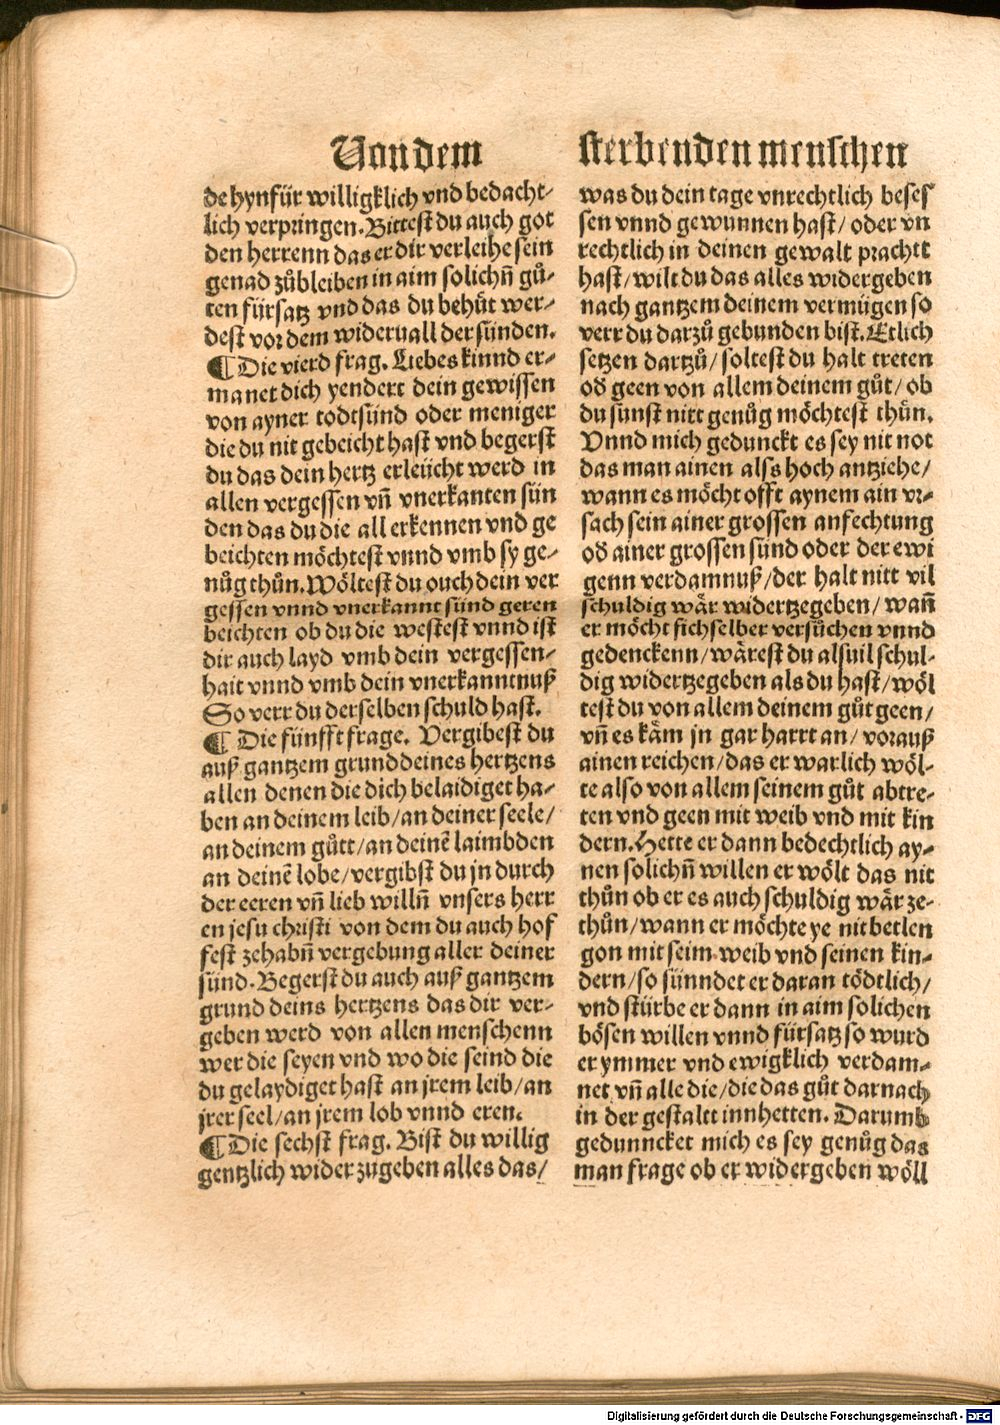 Von dem
de hynfür willigklich vnd bedacht-
lich verpringen. Bittest du auch got
den herrenn das er dir verleihe sein
genad zůbleiben in aim solichñ gů-
ten fürsatz vnd das du behůt wer-
dest vor dem wideruall der sünden.
¶ Die vierd frag. Liebes kinnd er-
manet dich yendert dein gewissen
von ayner todtsünd oder meniger
die du nit gebeicht hast vnd begerst
du das dein hertz erleücht werd in
allen vergessen vñ vnerkanten sün
den das du die all erkennen vnd ge
beichten möchtest vnnd vmb sy ge-
nůg thůn. Wöltest du ouch dein ver
gessen vnnd vnerkannt sünd geren
beichten ob du die westest vnnd ist
dir auch layd vmb dein vergessen-
hait vnnd vmb dein vnerkanntnuß
So verr du derselben schuld hast.
¶ Die fünfft frage. Vergibest du
auß gantzem grund deines hertzens
allen denen die dich belaidiget ha-
ben an deinem leib/an deiner seele/
an deinem gůtt/an deinē laimbden
an deinē lobe/vergibst du jn durch
der eeren vñ lieb willñ vnsers herr
en jesu christi von dem du auch hof
fest zehabñ vergebung aller deiner
sünd. Begerst du auch auß gantzem
grund deins hertzens das dir ver-
geben werd von allen menschenn
wer die seyen vnd wo die seind die
du gelaydiget hast an jrem leib/an
jrer seel/an jrem lob vnnd eren.
¶ Die sechst frag. Bist du willig
gentzlich wider zugeben alles das/
sterbenden menschen
was du dein tage vnrechtlich beses
sen vnnd gewunnen hast/oder vn
rechtlich in deinen gewalt prachtt
hast/wilt du das alles widergeben
nach gantzem deinem vermügen so
verr du darzů gebunden bist. Etlich
setzen dartzů/soltest du halt treten
od geen von allem deinem gůt/ob
du sunst nitt genůg möchtest thůn.
Vnnd mich gedunckt es sey nit not
das man ainen alss hoch antziehe/
wann es möcht offt aynem ain vr-
sach sein ainer grossen anfechtung
od ainer grossen sünd oder der ewi
genn verdamnuß/der halt nitt vil
schuldig wär widertzegeben/wañ
er möcht sichselber versůchen vnnd
gedenckenn/wärest du alsuil schul-
dig widertzegeben als du hast/wöl
test du von allem deinem gůt geen/
vñ es käm jn gar harrt an/vorauß
ainen reichen/das er warlich wöl-
te also von allem seinem gůt abtre-
ten vnd geen mit weib vnd mit kin
dern. Hette er dann bedechtlich ay-
nen solichñ willen er wölt das nit
thůn ob er es auch schuldig wär ze-
thůn/wann er möchte ye nit betlen
gon mit seim weib vnd seinen kin-
dern/so sünndet er daran tödtlich/
vnd stürbe er dann in aim solichen
bösen willen vnnd fürsatz so wurd
er ymmer vnd ewigklich verdam-
net vñ alle die/die das gůt darnach
in der gestaltt innhetten. Darumb
gedunncket mich es sey genůg das
man frage ob er widergeben wöll
Digitalisierung gefördert durch die Deutsche Forschungsgemeinschaft - DFG